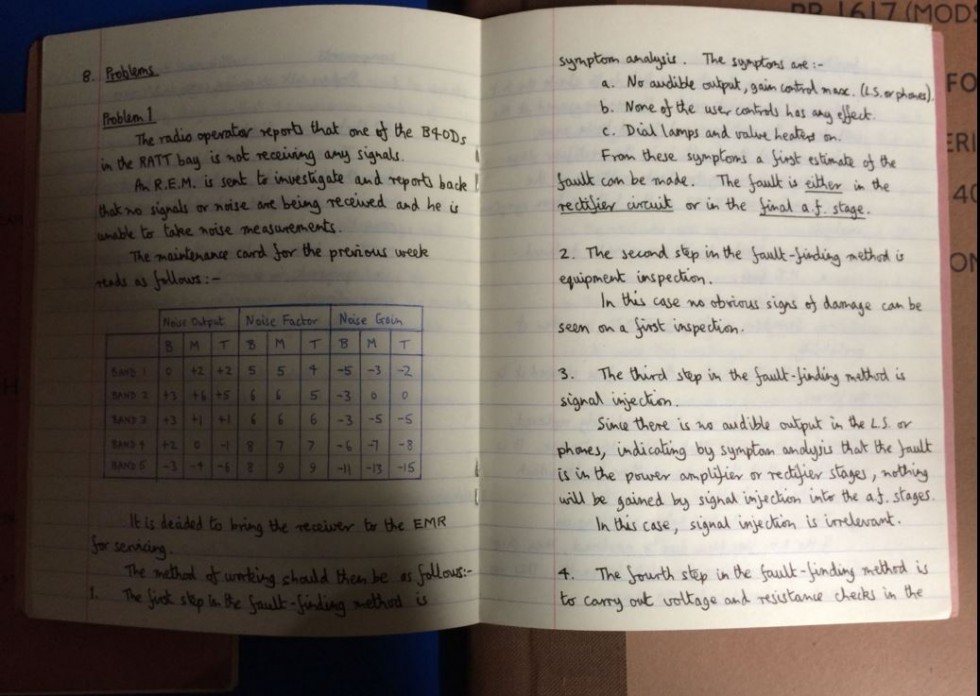 8. Problems
Problem 1
The radio operator reports that one of the B40Ds
in the RATT bay is not receiving any signals.
An R.E.M. is sent to investigate and reports back
that no signals or noise are being received and he is
unable to take noise measurements.
The maintenance card for the previous week
reads as follows:-
Noise Output Noise Factor Noise Gain
B M T B M T B M T
BAND 1 0 +2 +2 5 5 4 -5 -3 -2
BAND 2 +3 +6 +5 6 6 5 -3 0 0
BAND 3 +3 +1 +1 6 6 6 -3 -5 -5
BAND 4 +2 0 -1 8 7 7 -6 -7 -8
BAND 5 -3 -4 -6 8 9 9 -11 -13 -15
It is decided to bring the receiver to the EMR
for servicing.
The method of working should then be as follows:-
1. The first step in the fault-finding method is
symptom analysis. The symptoms are:-
a. No audible output, gain control max. (L.S. or phones).
b. None of the user controls has any effect.
c. Dial lamps and valve heaters on.
From these symptoms a first estimate of the
fault can be made. The fault is either in the
rectifier circuit or in the final a.f. stage.
2. The second step in the fault-finding method is
equipment inspection.
In this case no obvious signs of damage can be
seen on a first inspection.
3. The third step in the fault-finding method is
signal injection.
Since there is no audible output in the L.S. or
phones, indicating by symptom analysis that the fault
is in the power amplifier or rectifier stages, nothing
will be gained by signal injection into the a.f. stages.
In this case, signal injection is irrelevant.
4. The fourth step in the fault-finding method is
to carry out voltage and resistance checks in the
BR 1617 (MOD
FO
ERI
40
ON